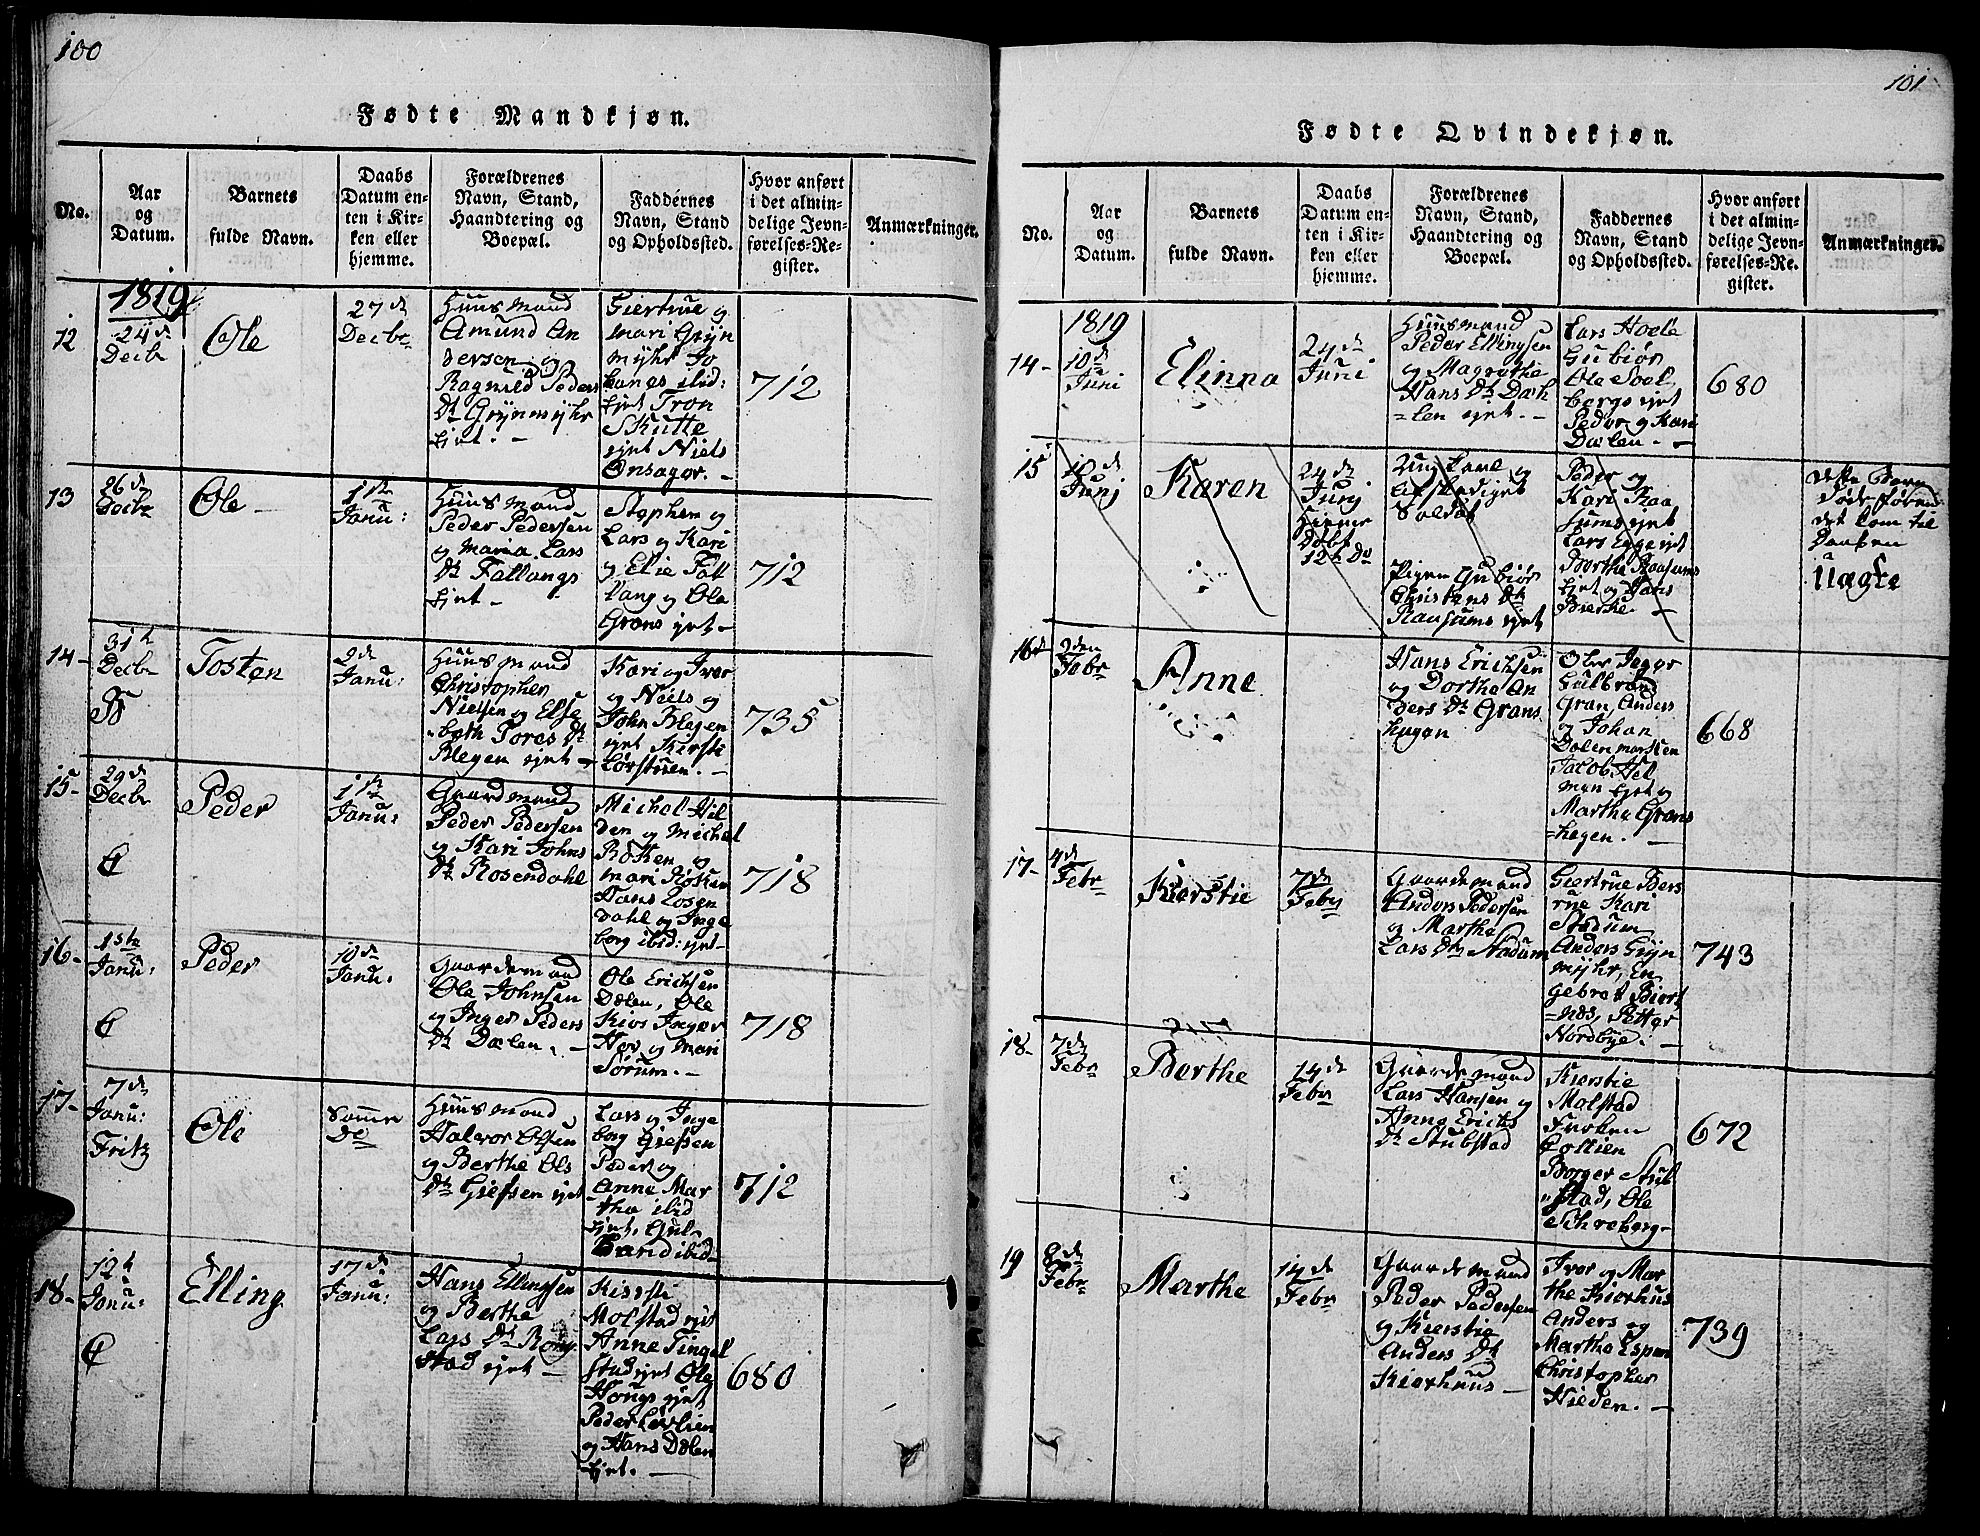 100
Fødte Mandkjøn.
No.
Aar
og
Datum.
Barnets
fulde Navn.
Daabs
Datum en-
ten i Kir-
ken eller
hjemme.
Forældrenes
Navn, Stand,
Haandtering og
Boepæl.
Faddernes
Navn, Stand
og Opholdssted.
Hvor anført
i det almin-
delige Jevn-
førelses-Re-
gister.
Anmærkninger.
1819
12
24 d
Decbr
Ole
27 d
Decbr
Huusmand
Amund An
dersen og
Ragnild Peders
Dt Grynmyhr
Ejet. -
Giertrue og
Mari Gryn
myhr Jo
hanes ibid:
Ejet Tron
Skutte
ejet Niels
Onsager. -
712
13
26 d
Decbr
Ole -
1ste
Janu:
Huusmand
Peder Pedersen
og Maria Lars
Dt Fallangs
Ejet -
Stephen og
Lars og Kari
og Elie Fall
lang og Ole
Grans ejet -
712
14 -
31 te
Decbr
Tosten
2 d
Janu:
Huusmand
Christopher
Nielsen og Else
beth Tores Dt
Blegen ejet -
Kari og Iver
og Niels og
John Blegen
ejet Kirsti
735
15 -
29 d
Decbr
Peder
1ste
Janu:
Gaardmand
Peder Pedersen
og Kari Johns
Dt Rosendahl
Michel Hil
den og Michel
Røken og
Mari Røken
Hans Rosen
dahl og Inge
borg ibid: ejet -
718
16 -
1ste
Janu:
Peder
10 d
Janu:
Gaardemand
Ole Johnsen
og Inger Peders
Dt Dælen. -
Ole Erichsen
Dælen, Ole
Kios Inger
Hov og Mari
Sørum. -
718
17 -
7 d
Janu:
Fritz
Ole
Samme
De
Huusmand
Halvor Olsen
og Berthe Ols
Dt Giefsen ejet
Lars og Inge
borg Giefsen
Peder og
Anne Mar
tha ibid
Ejet, Gul-
brand ibid -
712
18 -
12 t
Janu:
Elling
17 d
Janu:
Hans Ellingsen
og Berthe
Lars Dt Rong
stad ejet -
Kirsti
Molstad ejet
Anne Tingel
stad ejet Ole
Hougs ejet
Peder Løvlien
og Hans Dælen
Ejet. -
680
101
Fødte Qvindekjøn.
No.
Aar
og
Datum.
Barnets
fulde Navn.
Daabs
Datum en-
ten i Kir-
ken eller
hjemme.
Forældrenes
Navn, Stand,
Haandtering og
Boepæl.
Faddernes
Navn, Stand
og Opholdssted.
Hvor anført
i det almin-
delige Jevn-
førelses-Re-
gister.
Anmærkninger.
1819
14 -
10 d
Juni
Elinna
24 de
Juni
Huusmand
Peder Ellingsen
og Magrethe
Hans Dt Dæh
=len ejet. -
Lars Hoele
Gubiør
Ole Soel
bergs ejet
Peder og Kari
Dælen. -
680
15
Junj
Karen
24 de
Junj
Hjeme
Døbt
12te Do
Ung Karl og
afskediget
Soldat
Pigen Gubiør
Christens Dt
Raasums ejet
Peder og
Kari Raa
sums ejet
Lars Egge ejet
Berthe Raasums
Ejet og Hans
Bierke. -
dette Barn
døde førend
det kom til
Daaben
Uægte
16 d
2 den
Febr
Anne
Hans Erichsen
og Dorthe An
ders Dt Grans
hagen
Gulbrand
Gran, Anders
og Johan
Dælen
Jacob Hel
man Ejet og
Marthe Grans
=hagen. -
668
17 -
4 d
Febr
Kierstie
7 de
Febr
Gaardemand
Anders Pedersen
og Marthe
Lars Dt Stadum
Giertrue Bers
rue Kari
Stadum
Anders Gryn
myhr, En
gebret Biert
=næs, Petter
Nordbye. -
743
18 -
7 d
Febr
Berthe
14 de
Febr
Gaardemand
Lars Hansen og
Anne Erichs
Dt Stubstad
Kierstie
Molstad
Frøken
Collien
Borger Stub
=stad, Ole
Schreberg -
672
19
8 d
Febr
Marthe
14 d
Febr
Gaardemand
Peder Pedersen
og Kierstie
Anders Dt
Kiorhuus -
Iver og Mar
the Kiorhus
Anders og
Marthe Espen
Christopher
Hilden. -
739